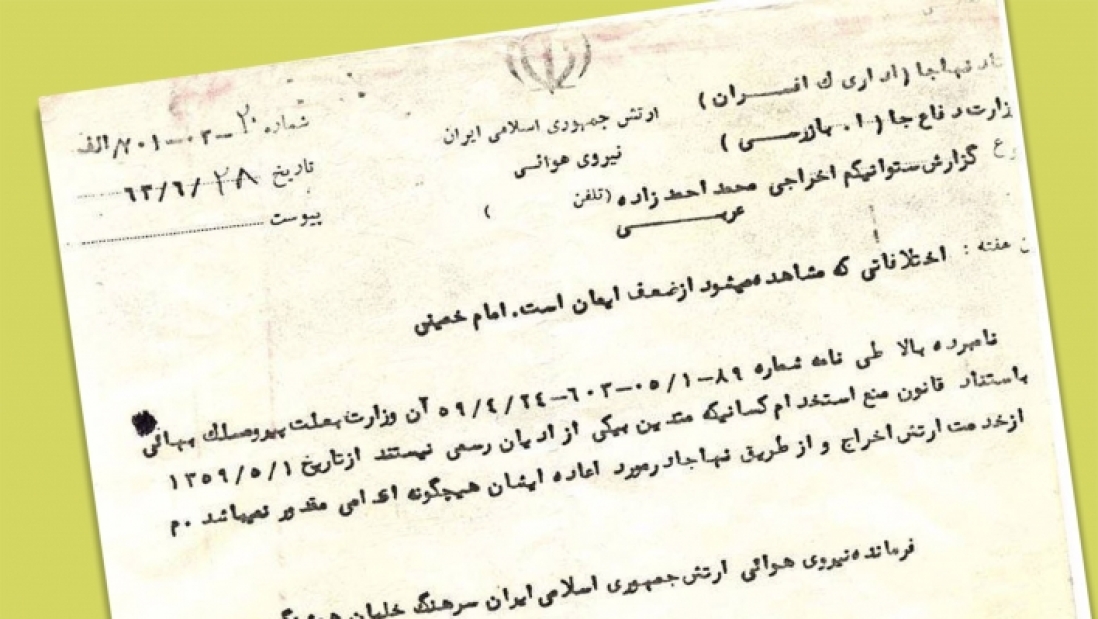 شماره ۲۰-۰۳-۷۰۱/الف
تاریخ ۶۳/۶/۲۸
پیوست
ارتش جمهوری اسلامی ایران
نیروی هوائی
(تلفن )
نهاجا (اداری ک افسران)
وزارت دفاع جا (۱. بازرسی)
گزارش ستوانیکم اخراجی محمد احمد زاده
عربی
هفته : اختلافاتی که مشاهده میشود از ضعف ایمان است. امام خمینی
نامبرده بالا طی نامه شماره ۸۹-۰۵/۱-۶۰۳-۵۹/۴/۲۴ آن وزارت بعلت پیرو مسلک بهائی
باستناد قانون منع استخدام کسانیکه متدین بیکی از ادیان رسمی نیستند از تاریخ ۱۳۵۹/۵/۱
از خدمت ارتش اخراج و از طریق نهاجا در مورد اعاده ایشان هیچگونه اقدامی مقدور نمیباشد .م
فرمانده نیروی هوائی ارتش جمهوری اسلامی ایران سرهنگ خلبان